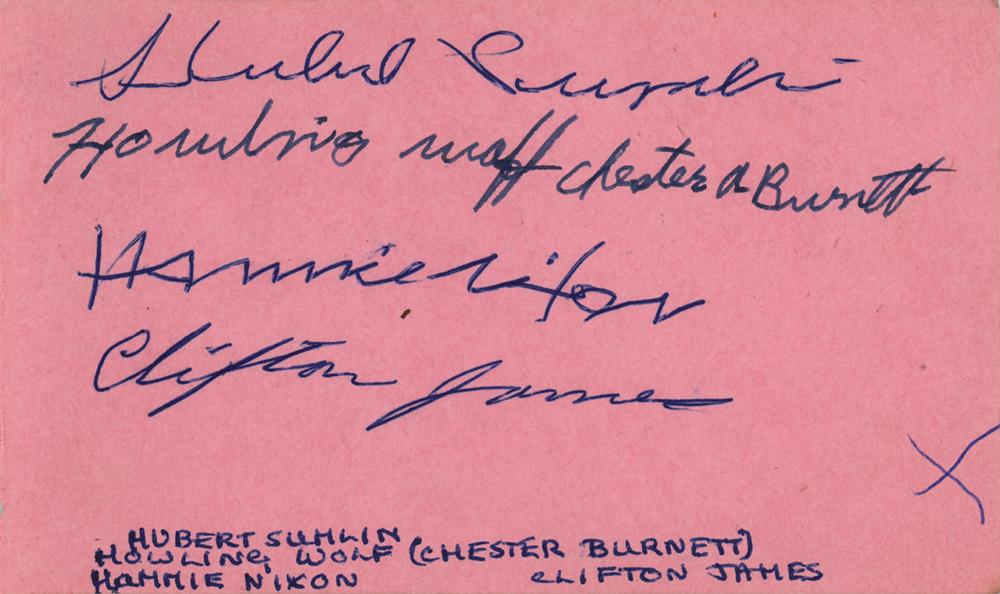 Hubert Sumlin
Howling Wolf Chester A Burnett
Hammie Nixon
Clifton James
X
HUBERT SUMLIN
HOWLING WOLF (CHESTER BURNETT)
HAMMIE NIXON CLIFTON JAMES